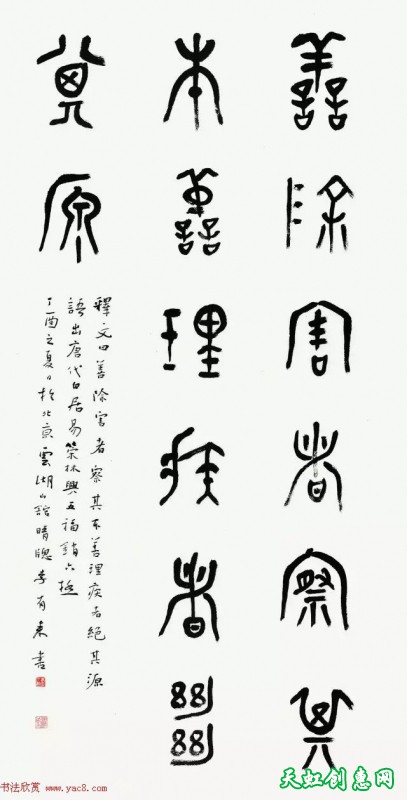 善除害者察其
本善理疾者絕
其原
釋文曰善除害者察其本善理疾者絕其源
語出唐代白居易策林興五福銷六極
丁酉之夏日於北京雲湖山館晴窗李有來書
书法欣赏 www.yac8.com
天虹创意网